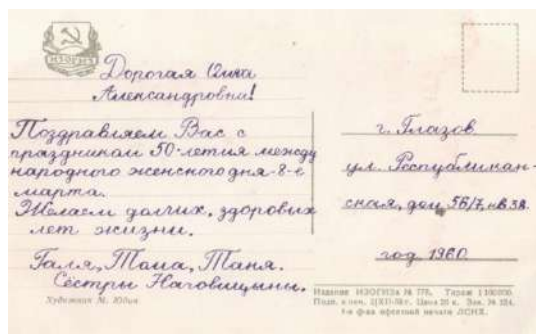 ИЗОГИЗ
Дорогая
Александровна!
Поздравляем Вас с
праздником 50-летия между
народного женского дня - 8-е
марта.
Желаем долгих, здоровых
лет жизни.
Галя, Тома, Таня.
Сёстры Наговицыны.
Художник М. Юдин
г. Глазов
ул. Республикан-
ская, дом 56/7, кв 38.
год 1960.
Издание ИЗОГИЗа № 778. Тираж 1 100000.
Подп. к печ. Цена 25 к. Зак. № 324.
4-я ф-ка офсетной печати ЛСНХ.